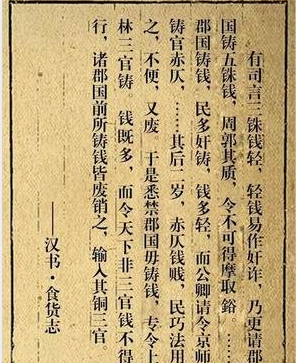 有司言三铢钱轻，轻钱易作奸诈，乃更请郡
国铸五铢钱，周郭其质，令不可得摩取鋊。……
郡国铸钱，民多奸铸，钱多轻，而公卿请令京师
铸官赤仄，……其后二岁，赤仄钱贱，民巧法用
之，不便，又废。于是悉禁郡国毋铸钱，专令上
林三官铸。钱既多，而令天下非三官钱不得
行，诸郡国前所铸钱皆废销之，输入其铜三官。
——汉书·食货志